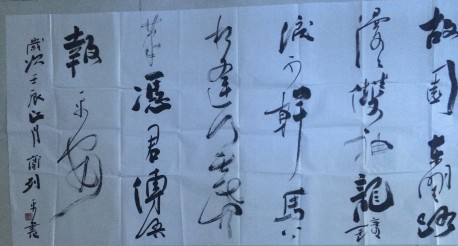 故園東望路
漫〻雙袖龍鍾
淚不乾馬上
相逢無紙
筆憑君傳語
報平安
歲次壬辰正月 平書